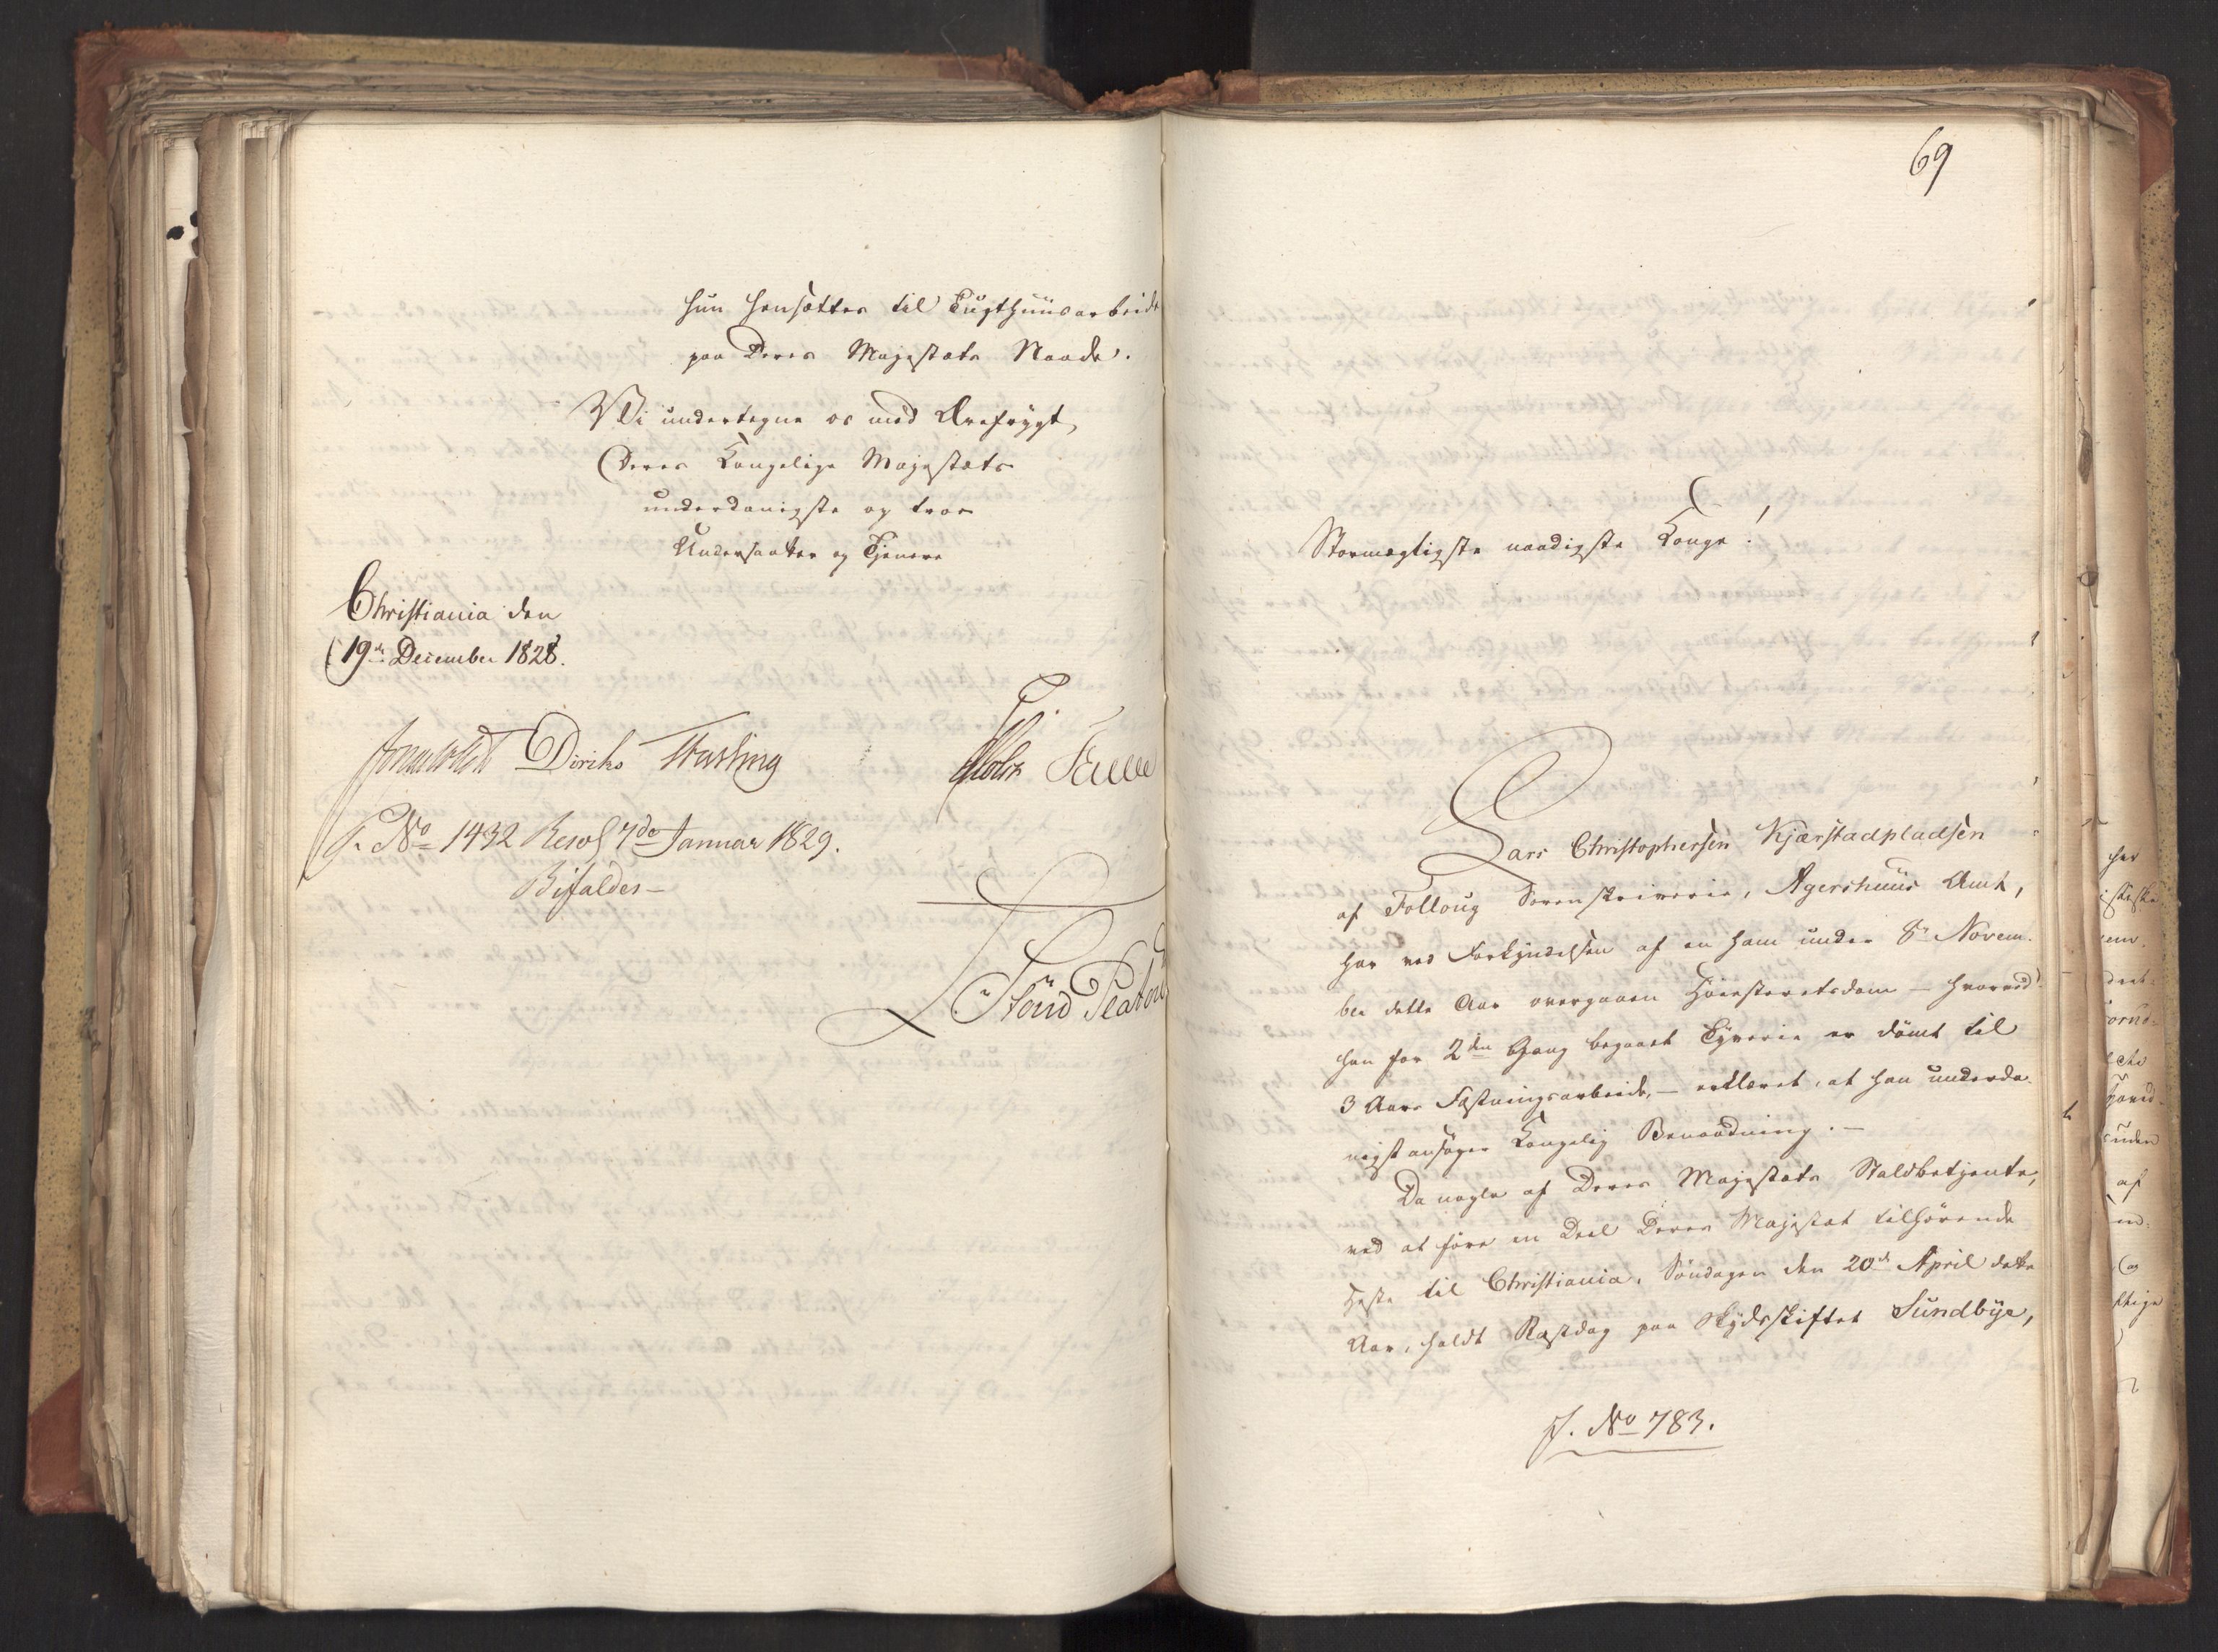 hun hensættes til Tugthuusarbeide
paa Deres Majestæts Naade.
Vi undertegne os med Ærefrygt,
Deres Kongelige Majestæts
underdanigste og troe
Undersaatter og Tjenere
Christiania den
19de December 1828.
Jonas Collett Diriks Treschow
Holst Fasting
J. No 1432 Resol 7de Januar 1829.
Bifaldes —
69
Stormægtigste naadigste Konge!
Lars Christophersen Kjærstadpladsen
af Folloug Sorenskriverie, Agershuus Amt,
har ved Forkyndelsen af en ham under 8de Novem-
ber dette Aar overgaaen Høiesteretsdom — hvorved
han for 2den Gang begaaet Tyverie er dømt til
3 Aars Fæstningsarbeide, — erklæret, at han underda-
nigst ansøger Kongelig Benaadning. —
Da nogle af Deres Majestæts Staldbetjente,
ved at føre en Deel Deres Majestæt tilhørende
Heste til Christiania, Søndagen den 20de April dette
Aar, holdt Rastdag paa Skydsskiftet Sundbye,
J. No 783.